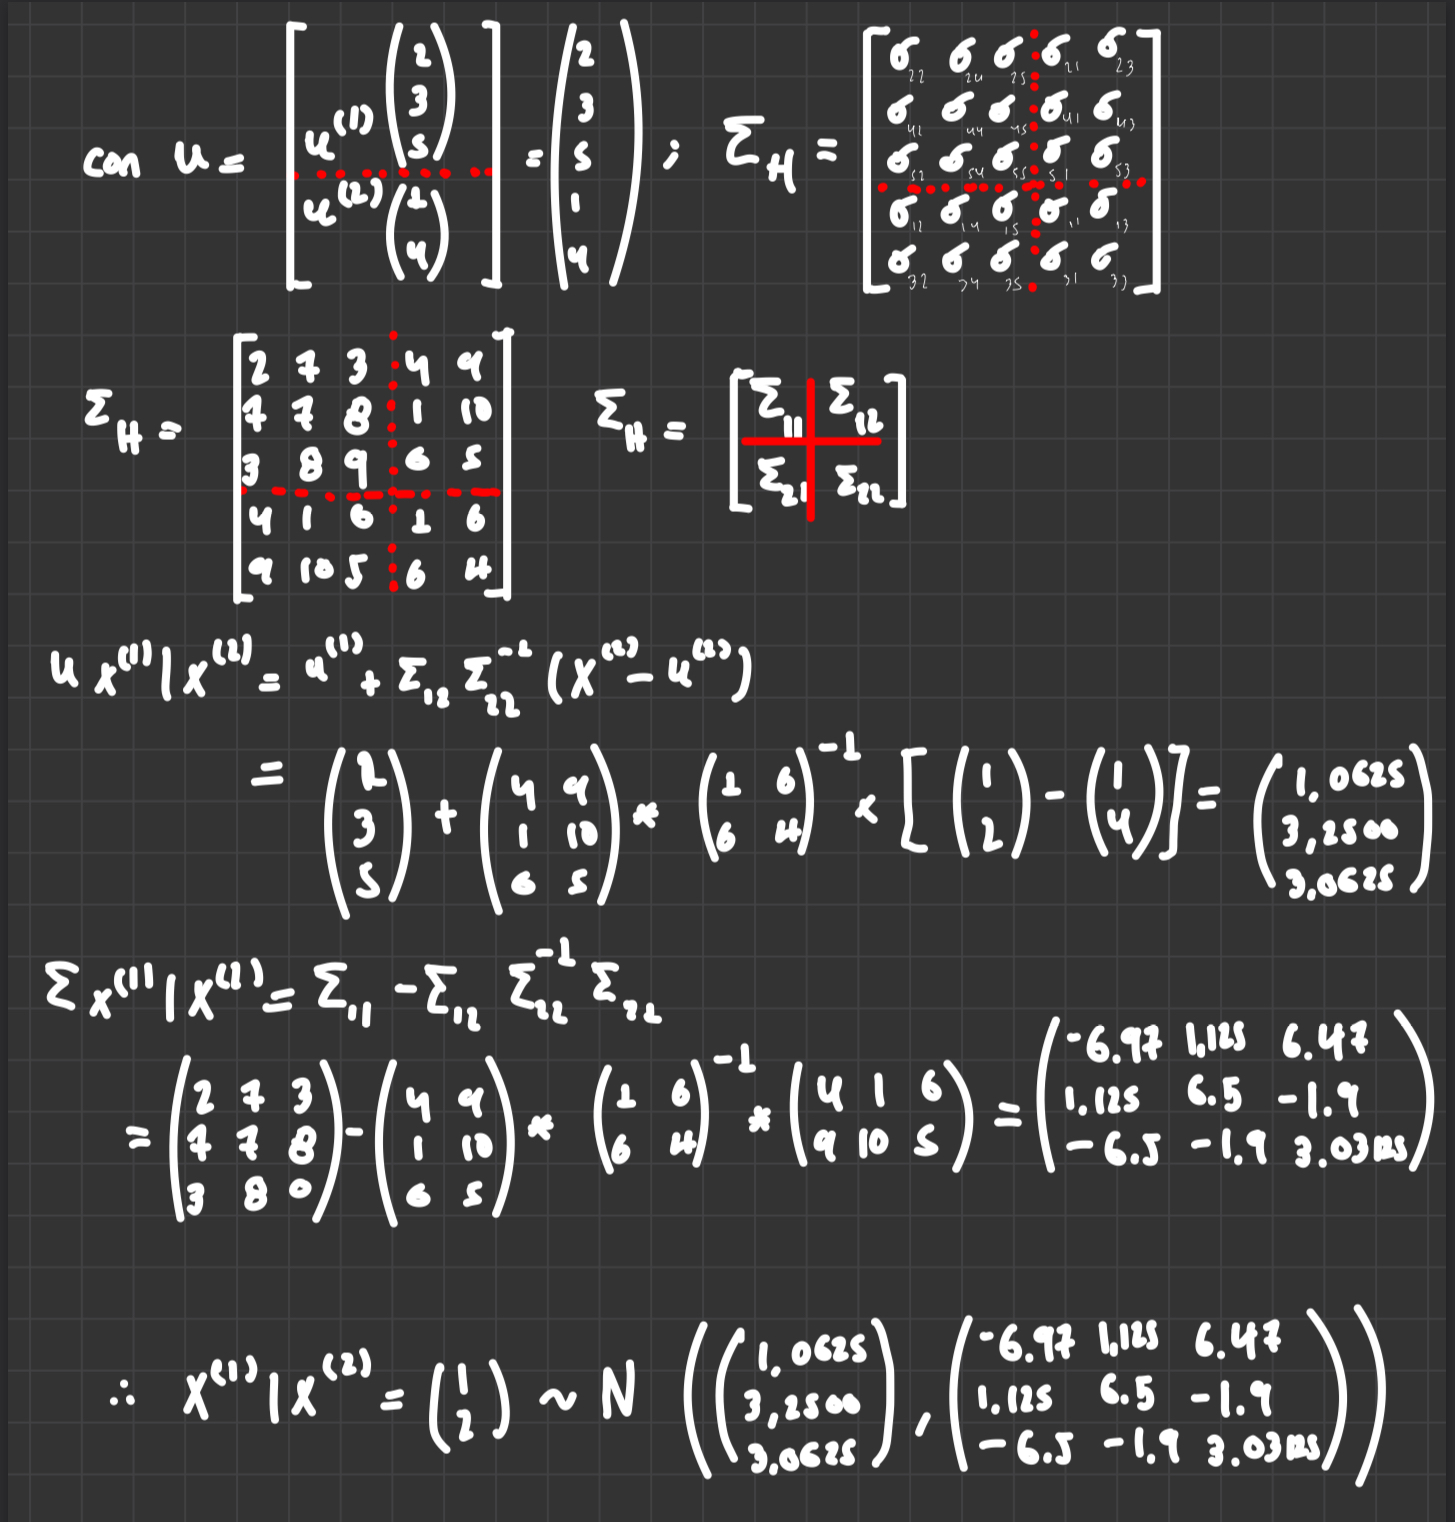 con u = [ u^(1) (2 3 5) u^(2) (1 4) ] = (2 3 5 1 4) ; Σ_H = [
σ_22 σ_24 σ_25 σ_21 σ_23
σ_42 σ_44 σ_45 σ_41 σ_43
σ_52 σ_54 σ_55 σ_51 σ_53
σ_12 σ_14 σ_15 σ_11 σ_13
σ_32 σ_34 σ_35 σ_31 σ_33 ]
Σ_H = [
2 7 3 4 9
7 7 8 1 10
3 8 9 6 5
4 1 6 1 6
9 10 5 6 4 ]
Σ_H = [ Σ_11 Σ_12
Σ_21 Σ_22 ]
u x^(1) | x^(2) = u^(1) + Σ_12 Σ_22^-1 (x^(2) - u^(2))
= (2 3 5) + (4 9 1 10 6 5) * (1 6 6 4)^-1 × [ (1 2) - (1 4) ] = (1,0625 3,2500 3,0625)
Σ x^(1) | x^(2) = Σ_11 - Σ_12 Σ_22^-1 Σ_21
= (2 7 3 7 7 8 3 8 0) - (4 9 1 10 6 5) * (1 6 6 4)^-1 * (4 1 6 9 10 5) = (-6.97 1,125 6.47 1.125 6.5 -1.9 -6.5 -1.9 3.03125)
∴ X^(1) | X^(2) = (1 2) ~ N ((1,0625 3,2500 3,0625) , (-6.97 1,125 6.47 1.125 6.5 -1.9 -6.5 -1.9 3.03125))